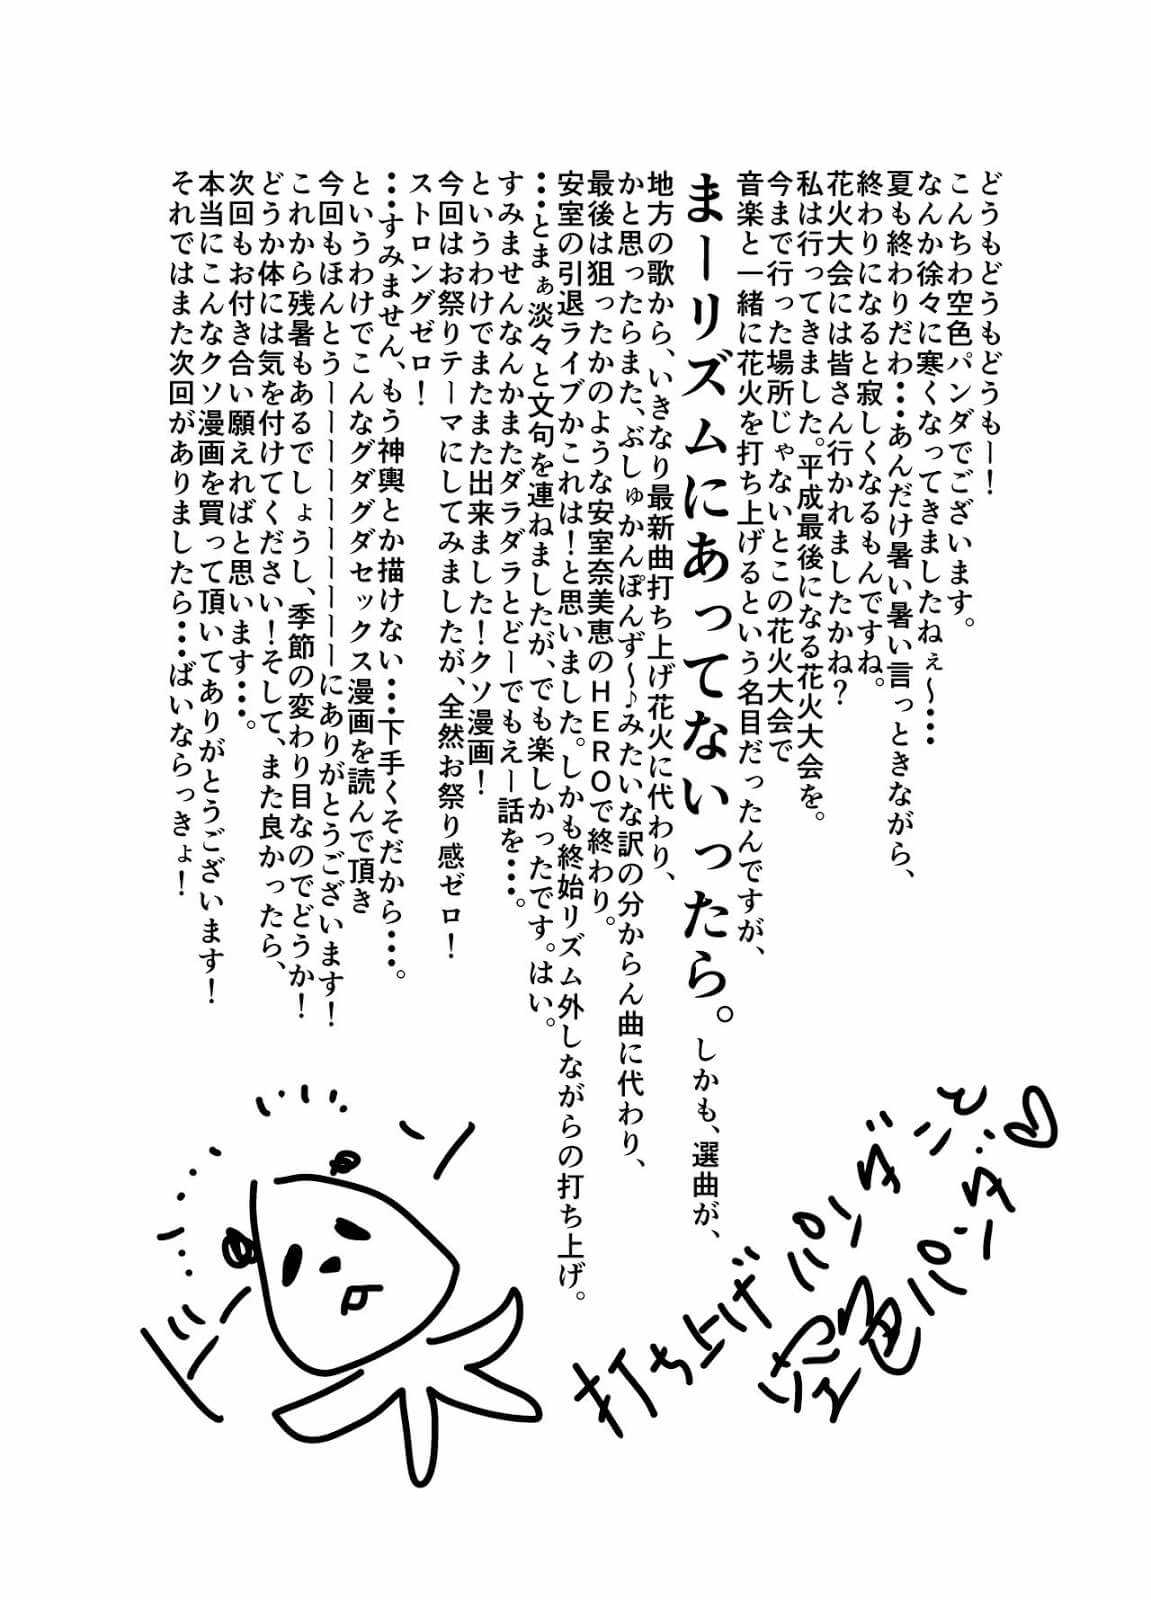 どうもどうもどうもー!
こんちわ空色パンダでございます。
なんか徐々に寒くなってきましたねぇ〜・・・
夏も終わりだわ・・・あんだけ暑い暑い言っときながら、
終わりになると寂しくなるもんですね。
花火大会には皆さん行かれましたかね?
私は行ってきました。平成最後になる花火大会を。
今まで行った場所じゃないとこの花火大会で
音楽と一緒に花火を打ち上げるという名目だったんですが、
まーリズムにあってないったら。しかも、選曲が、
地方の歌から、いきなり最新曲打ち上げ花火に代わり、
かと思ったらまた、ぶしゅかんぽんず〜♪みたいな訳の分からん曲に代わり、
最後は狙ったかのような安室奈美恵のHEROで終わり。
安室の引退ライブかこれは!と思いました。しかも終始リズム外しながらの打ち上げ。
・・・とまぁ淡々と文句を連ねましたが、でも楽しかったです。はい。
すみませんなんかまたダラダラとどーでもえー話を・・・。
というわけでまたまた出来ました!クソ漫画!
今回はお祭りテーマにしてみましたが、全然お祭り感ゼロ!
ストロングゼロ!
・・・すみません、もう神輿とか描けない・・・下手くそだから・・・。
というわけでこんなグダグダセックス漫画を読んで頂き
今回もほんとうーーーーーーーーーにありがとうございます!
これから残暑もあるでしょうし、季節の変わり目なのでどうか!
どうか体には気を付けてください!そして、また良かったら、
次回もお付き合い願えればと思います・・・。
本当にこんなクソ漫画を買って頂いてありがとうございます!
それではまた次回がありましたら・・・ばいならっきょ!
打ち上げパンダこと…♡
空色パンダ
ドーン